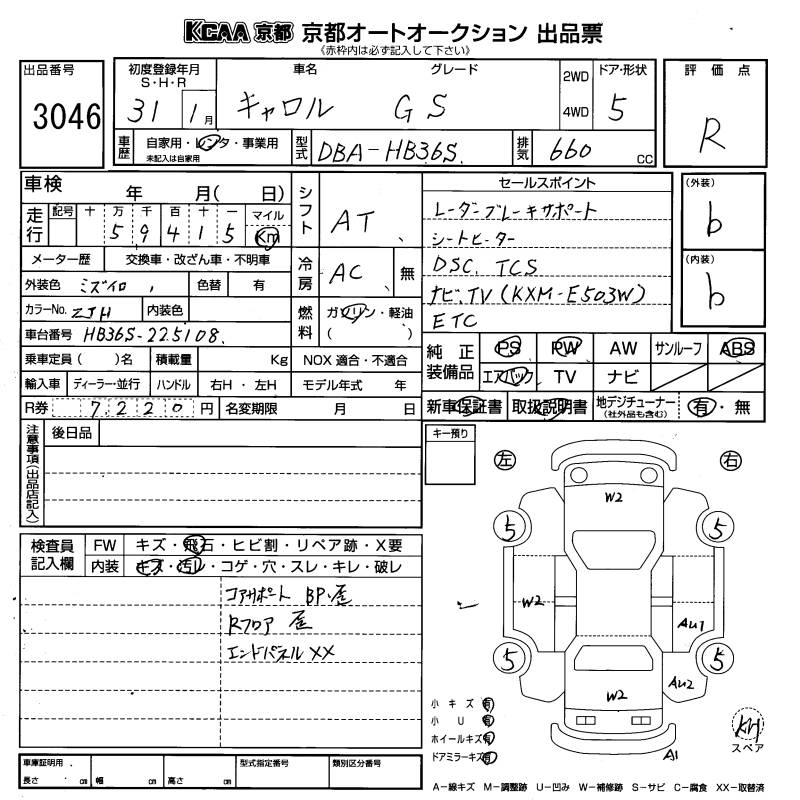 KCAA 京都 京都オートオークション 出品票
《赤枠内は必ず記入して下さい》
出品番号 3046
初度登録年月 S・H・R 31 1月
車名 キャロル グレード GS
2WD 4WD
ドア・形状 5
評価点 R
車歴 自家用・レンタ・事業用 未記入は自家用
型式 DBA-HB36S
排気 660 CC
車検 年 月( 日)
走行 記号 十 万 千 百 十 一 マイル Km
5 9 4 1 5
シフト AT
セールスポイント
レーダーブレーキサポート
シートヒーター
DSC. TCS
ナビ.TV (KXM-E503W)
ETC
(外装) b
(内装) b
メーター歴 交換車・改ざん車・不明車
冷房 AC 無
外装色 ミズイロ 色替 有
カラーNo. ZJH 内装色
燃料 ガソリン・軽油 ( )
車台番号 HB36S-225108
乗車定員( )名 積載量 Kg NOX 適合・不適合
輸入車 ディーラー・並行 ハンドル 右H・左H モデル年式 年
R券 7,220円 名変期限 月 日
純正装備品 PS PW AW サンルーフ ABS
エアバック TV ナビ
新車保証書 取扱説明書 地デジチューナー (社外品も含む) 有・無
注意事項(出品店記入)
後日品
キー預り
左 右
検査員記入欄
FW キズ・飛石・ヒビ割・リペア跡・X要
内装 キズ・汚レ・コゲ・穴・スレ・キレ・破レ
コアサポート BP.歪
Rフロア 歪
エンドパネル XX
W2
5 5
W2 Au1
5 5
Au2
W2
A1
小キズ 有
小U 有
ホイールキズ 有
ドアミラーキズ 有
スペア
車庫証明用 長さ cm 幅 cm 高さ cm
型式指定番号 類別区分番号
A-線キズ M-調整跡 U-凹み W-補修跡 S-サビ C-腐食 XX-取替済